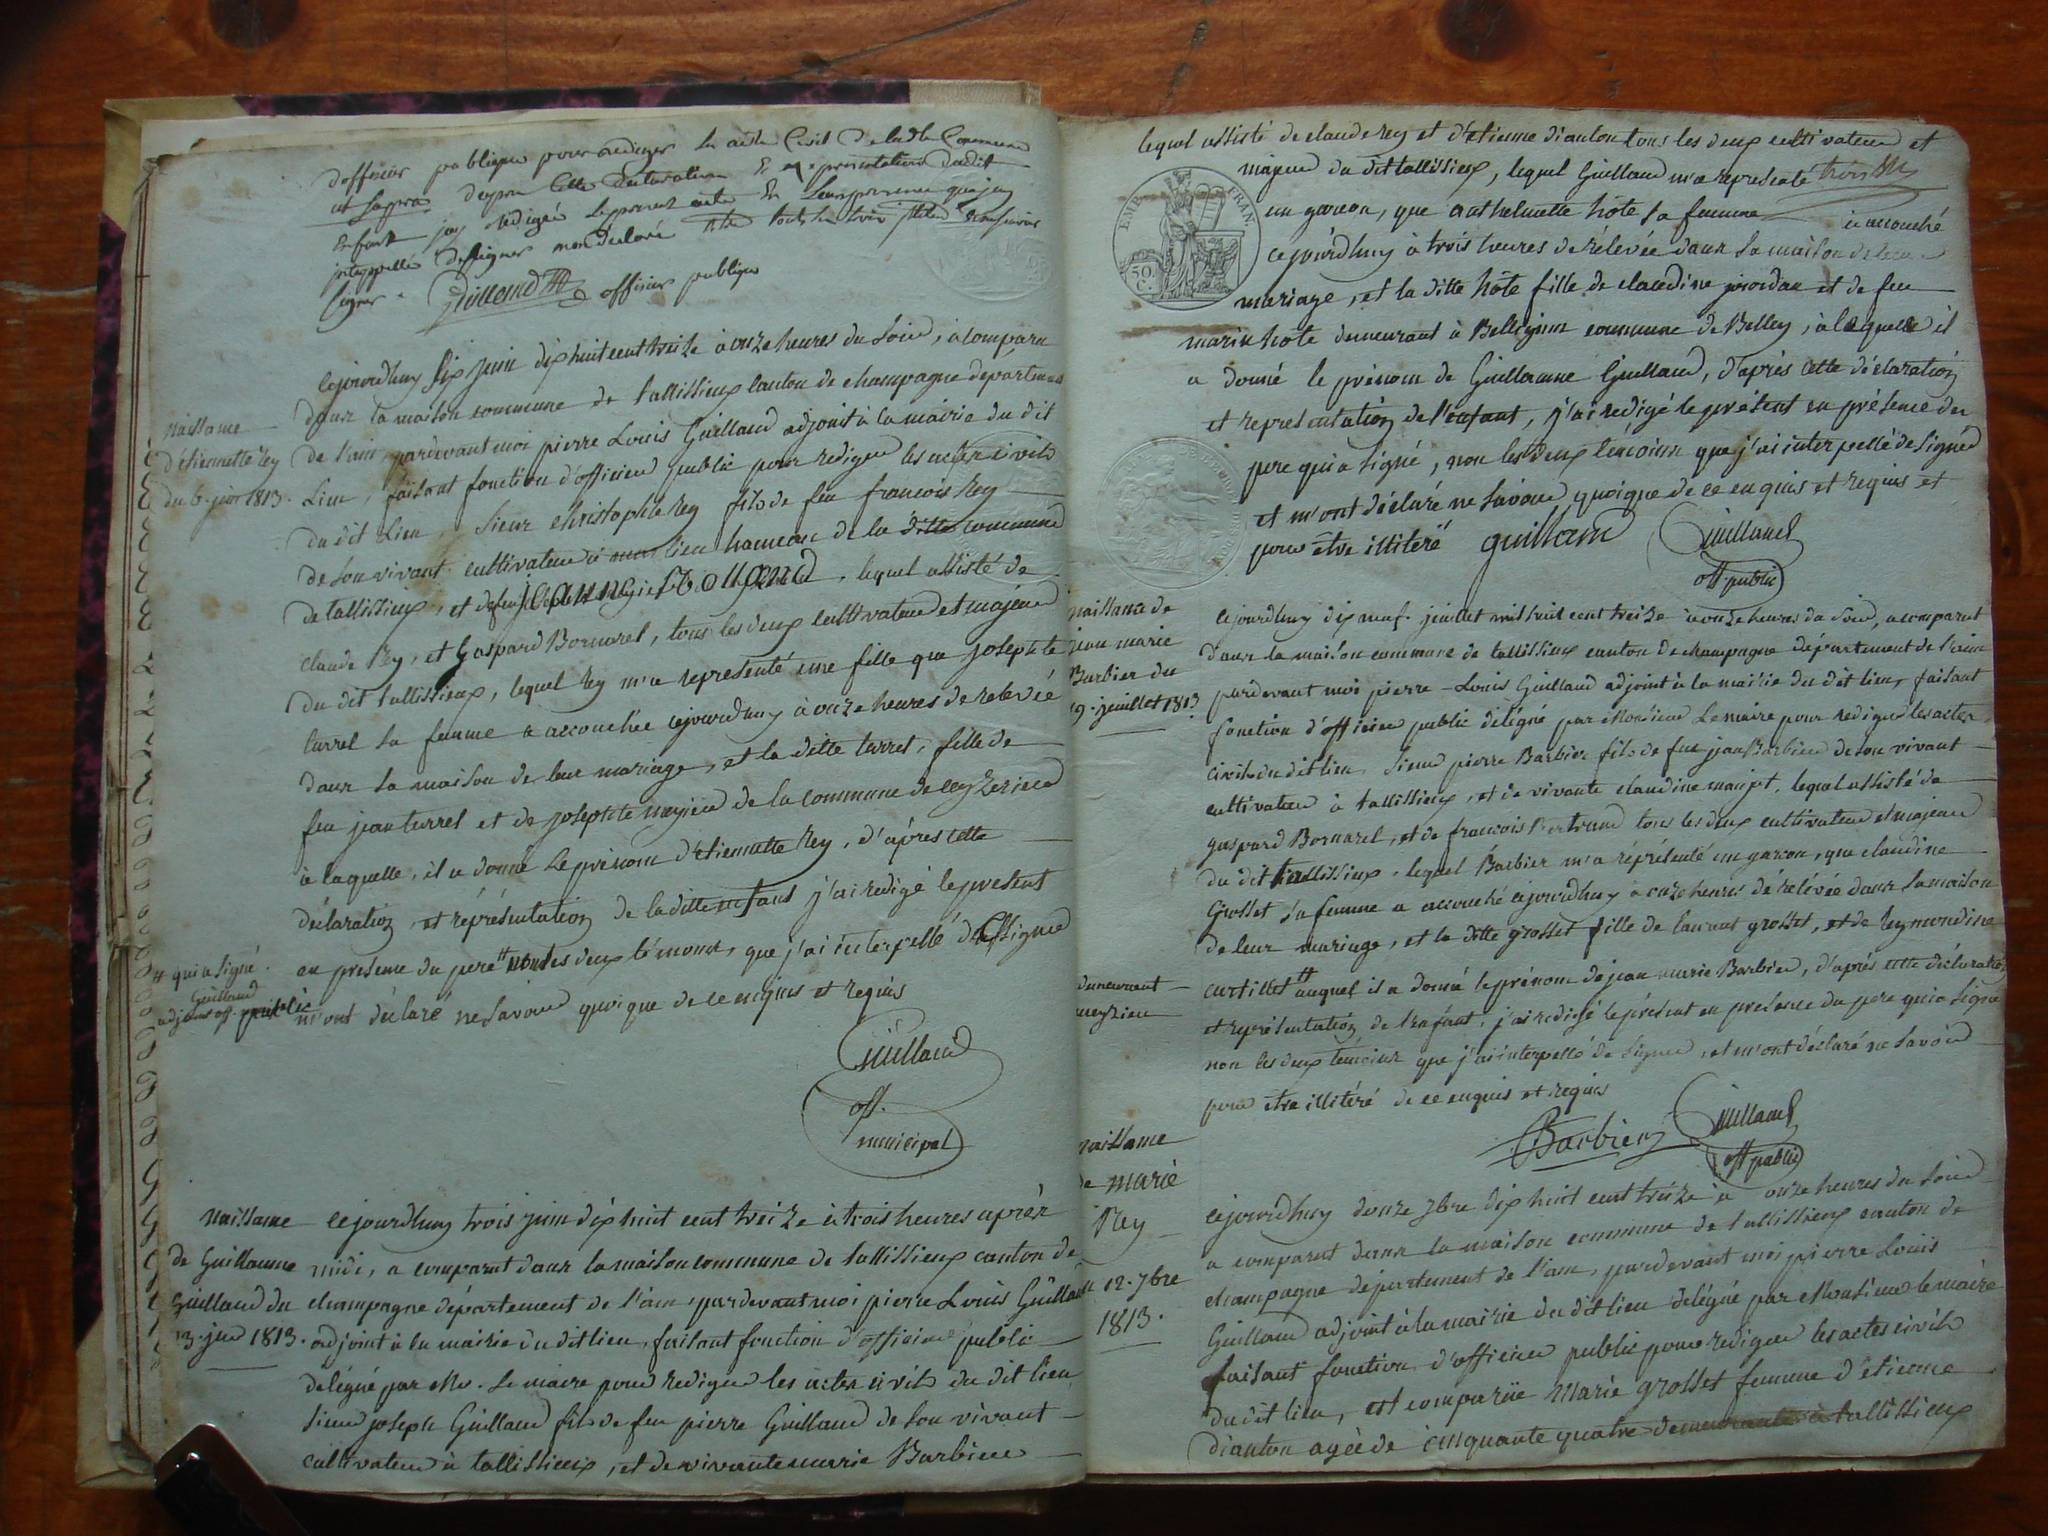 d'officier publique pour rediger les actes Civil De ladte Commune
cette declaration et representation dudit
Enfant j'ay redigée le present acte
interpellés designer mon déclaré
signer. Guilland officier publique
cejourdhuy six juin dix huit cent treize à onze heures du soir, à comparu
dans la maison commune de tallissieux canton de champagne departement
naissance
d'étiennette Rey
du 6. juin 1813.
de l'ain, pardevant moi pierre Louis Guilland adjoint à la mairie du dit
Lieu, faisant fonction d'officier public pour rediger les actes civils
du dit Lieu, sieur christophle Rey fils de feu francois Rey
de son vivant cultivateur à lieu hameau de la ditte commune
de tallissieux, et de , lequel assisté de
claude Rey, et Gaspard Bornarel, tous les deux cultivateur et majeur
du dit tallissieux, lequel Rey m'a representé une fille que josephte
turrel sa femme a accouchée cejourdhuy à onze heures de relevée
dans la maison de leur mariage, et la ditte turrel, fille de
feu jean turrel et de josephte de la commune de ceyzerieu
à laquelle, il a donné le prénom d'étiennette Rey, d'après cette
déclaration et réprésentation de la ditte enfant j'ai redigé le present
en presence du pere # non les deux témoins, que j'ai interpellé de signer
# qui a signé.
Guilland
adjoint off. public
m'ont déclaré ne savoir quoique de ce enquis et requis
Guilland
off.
municipal
naissance
de Guillaume
Guilland du
3. juin 1813.
cejourdhuy trois juin dix huit cent treize à trois heures après
midi, a comparut dans la maison commune de tallissieux canton de
champagne département de l'ain, pardevant moi pierre Louis Guilland
adjoint à la mairie du dit lieu, faisant fonction d'officier public
délégué par Mr. Le maire pour rediger les actes civils du dit lieu
sieur joseph Guilland fils de feu pierre Guilland de son vivant
cultivateur à tallissieux, et de vivante marie Barbier
lequel assisté de claude rey et d'étienne dianton tous les deux cultivateur et
majeur du dit tallissieux, lequel Guilland m'a representé
un garcon, que anthelmette hôte sa femme à accouché
cejourdhuy à trois heures de rélevée dans la maison de leur
mariage, et la ditte hôte fille de claudine jourdan et de feu
marin hôte demeurant à commune de Belley, à laquelle il
a donné le prénom de Guillaume Guilland, d'après cette déclaration
et representation de l'enfant, j'ai redigé le présent en présence du
pere qui a signé, non les deux temoins que j'ai interpellé de signer
et m'ont déclaré ne savoir quoique de ce enquis et requis et
pour être illiteré guilland Guilland
off public
EMP. FRAN.
50 C.
naissance de
jean marie
Barbier du
19. juillet 1813
cejourdhuy dix neuf juillet mil huit cent treize à onze heures du soir, a comparut
dans la maison commune de tallissieux canton de champagne département de l'ain
pardevant moi pierre Louis Guilland adjoint à la mairie du dit lieu, faisant
fonction d'officier public délégué par Monsieur Le maire pour rediger les actes
civils du dit lieu, sieur pierre Barbier fils de feu jean Barbier de son vivant
cultivateur à tallissieux, et de vivante claudine , lequel assisté de
gaspard Bornarel, et de francois Bertrand tous les deux cultivateur et majeur
du dit tallissieux, lequel Barbier m'a réprésenté un garcon, que claudine
Grosset sa femme a accouché cejourdhuy à onze heures de rélévée dans la maison
de leur mariage, et la ditte grosset fille de laurent grosset, et de Reymondine
curtillet # auquel il a donné le prénom de jean marie Barbier, d'après cette déclaration
demeurant
et représentation de l'enfant, j'ai redigé le présent en presence du pere qui a signé
non les deux témoins que j'ai interpellé de signer, et m'ont déclaré ne savoir
pour être illitéré de ce enquis et requis
Barbier Guilland
off public
naissance
de marie
Rey
du 12. 7bre
1813.
cejourdhuy douze 7bre dix huit cent treize à onze heures du soir
a comparut dans la maison commune de tallissieux canton de
champagne département de l'ain, pardevant moi pierre Louis
Guilland adjoint à la mairie du dit lieu délégué par Monsieur le maire
faisant fonction d'officier public pour rediger les actes civils
du dit lieu, est comparüe Marie grosset femme d'étienne
dianton agée de cinquante quatre demeurante à tallissieux